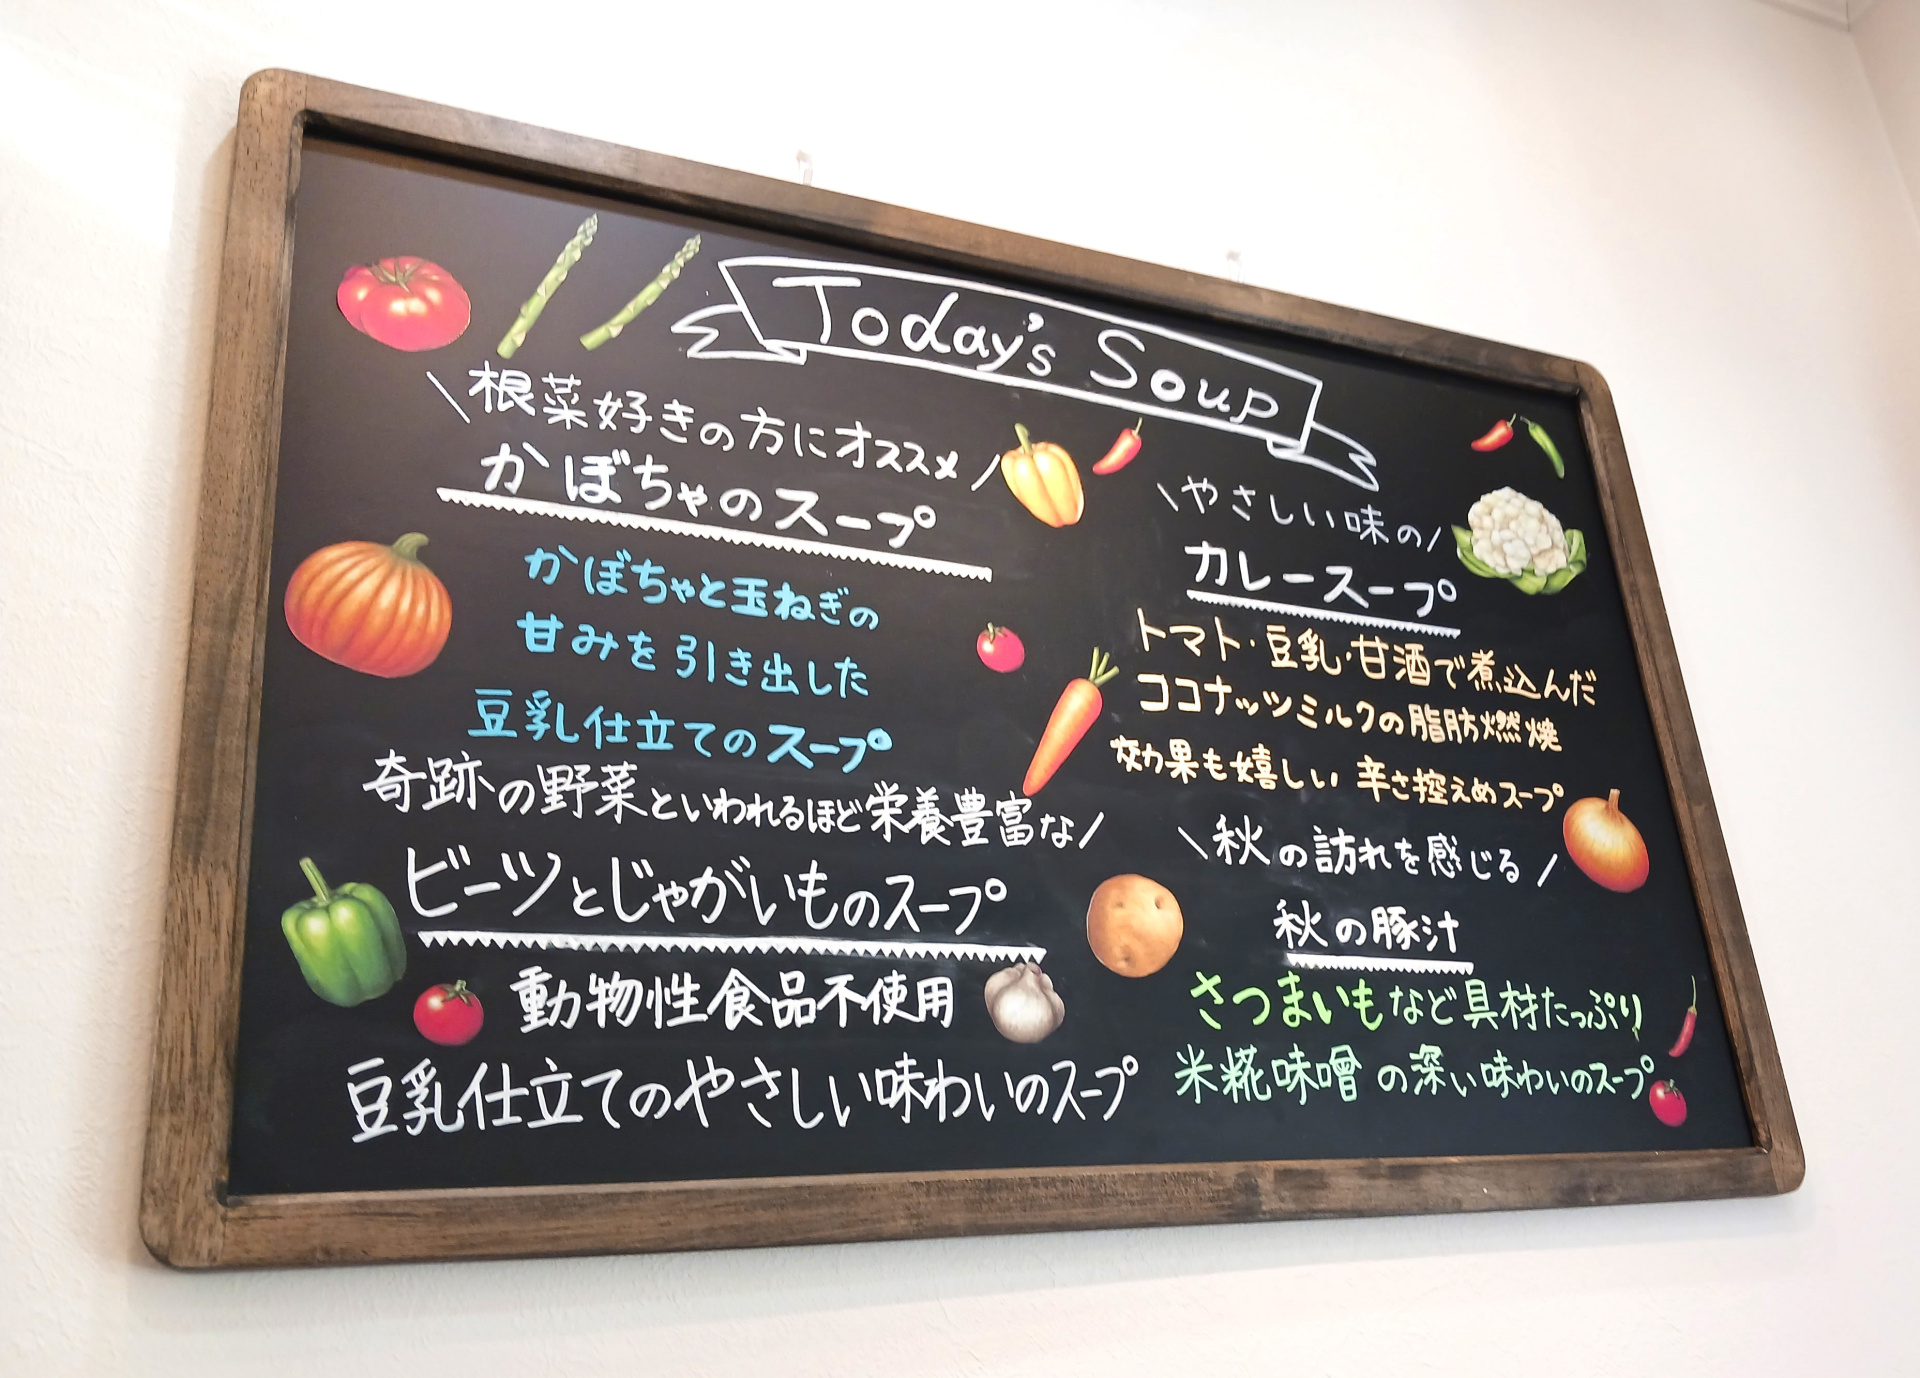 Today's Soup
根菜好きの方にオススメ
かぼちゃのスープ
かぼちゃと玉ねぎの
甘みを引き出した
豆乳仕立てのスープ
奇跡の野菜といわれるほど栄養豊富な
ビーツとじゃがいものスープ
動物性食品不使用
豆乳仕立てのやさしい味わいのスープ
やさしい味の
カレースープ
トマト・豆乳・甘酒で煮込んだ
ココナッツミルクの脂肪燃焼
効果も嬉しい 辛さ控えめスープ
秋の訪れを感じる
秋の豚汁
さつまいもなど具材たっぷり
米糀味噌の深い味わいのスープ